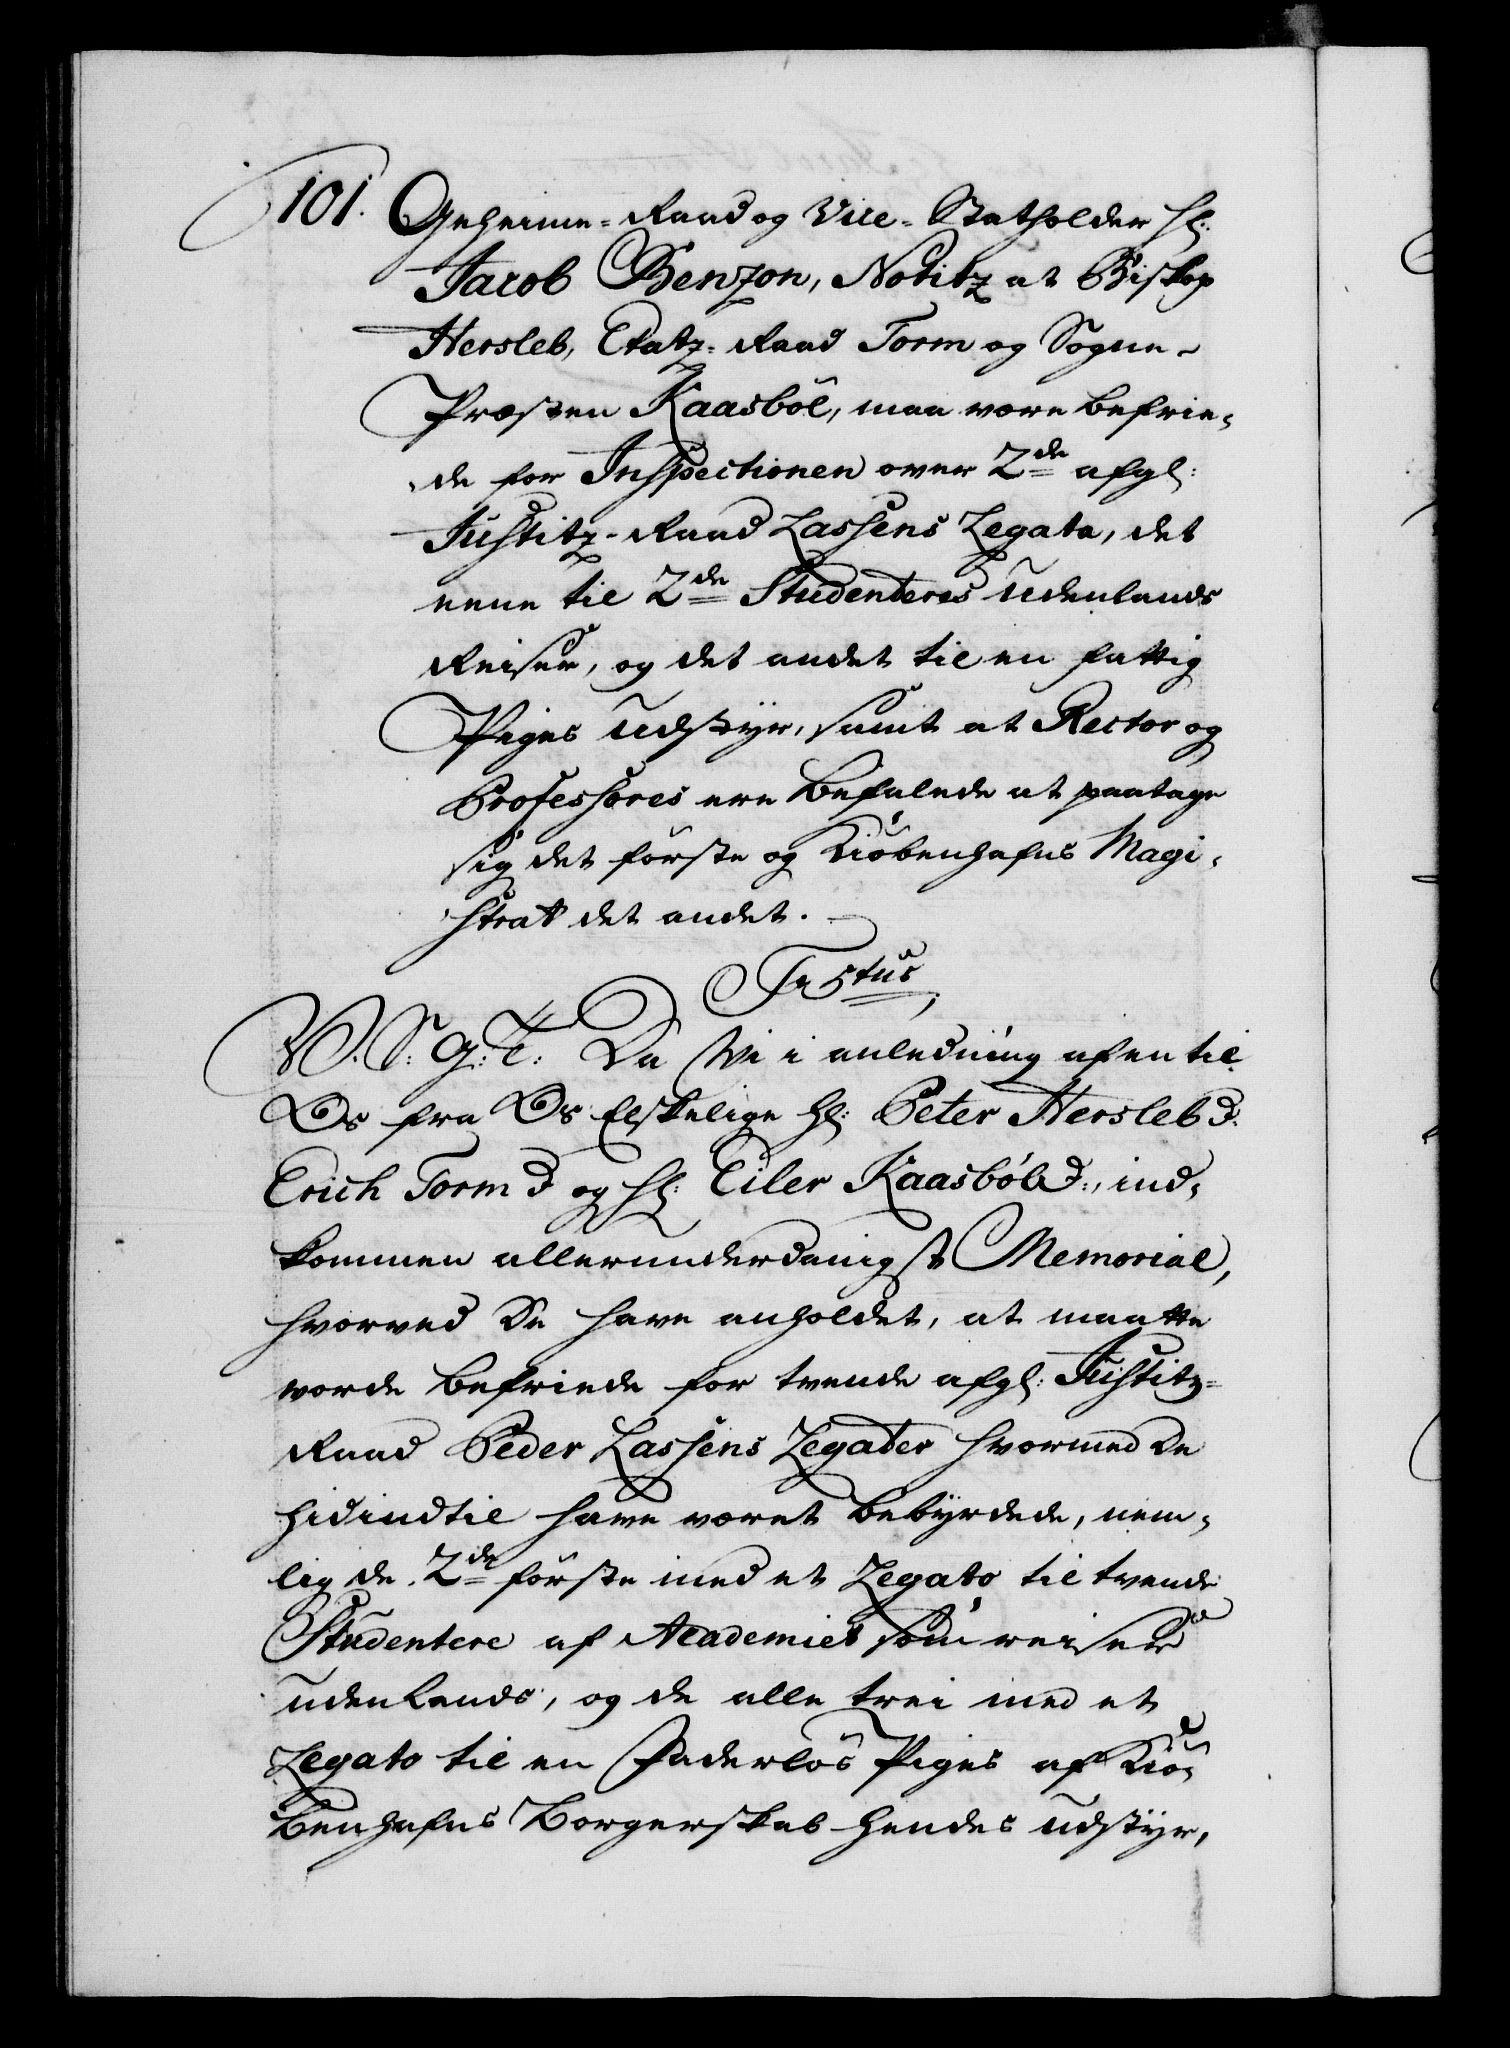 101. Geheime-Raad og Vice-Statholder Hr:
Jacob Benzon, Notitz at Biskop
Hersleb, Etatz-Raad Torm og Sogne-
Præsten Kaasböl, maa være befrie-
de for Inspectionen over 2de afgl:
Justitz-Raad Lassens Legata, det
eene til 2de Studenteres Udenlands
Reiser, og det andet til en fattig
Piges Udstyr, samt at Rector og
Professores ere befalede at paatage
sig det förste og Kiöbenhafns Magi-
strat det andet.
Textus
V. S: G: T: Da Wi i anledning af en til
Os fra Os Elskelige Hr: Peter Hersleb d.
Erich Torm d og Hr: Eiler Kaasböl d:, ind-
kommen allerunderdanigst Memorial,
hvorved De have anholdet, at maatte
vorde befriede for tvende afgl: Justitz-
Raad Peder Lassens Legater hvormed De
hidindtil have været bebyrdede, nem-
lig de 2de förste med et Legato til tvende
Studentere af Academiet som reiser
udenlands, og de alle trei med et
Legato til en Faderlös Piges af Kiö-
benhafns Borgerskab hendes udstyr,